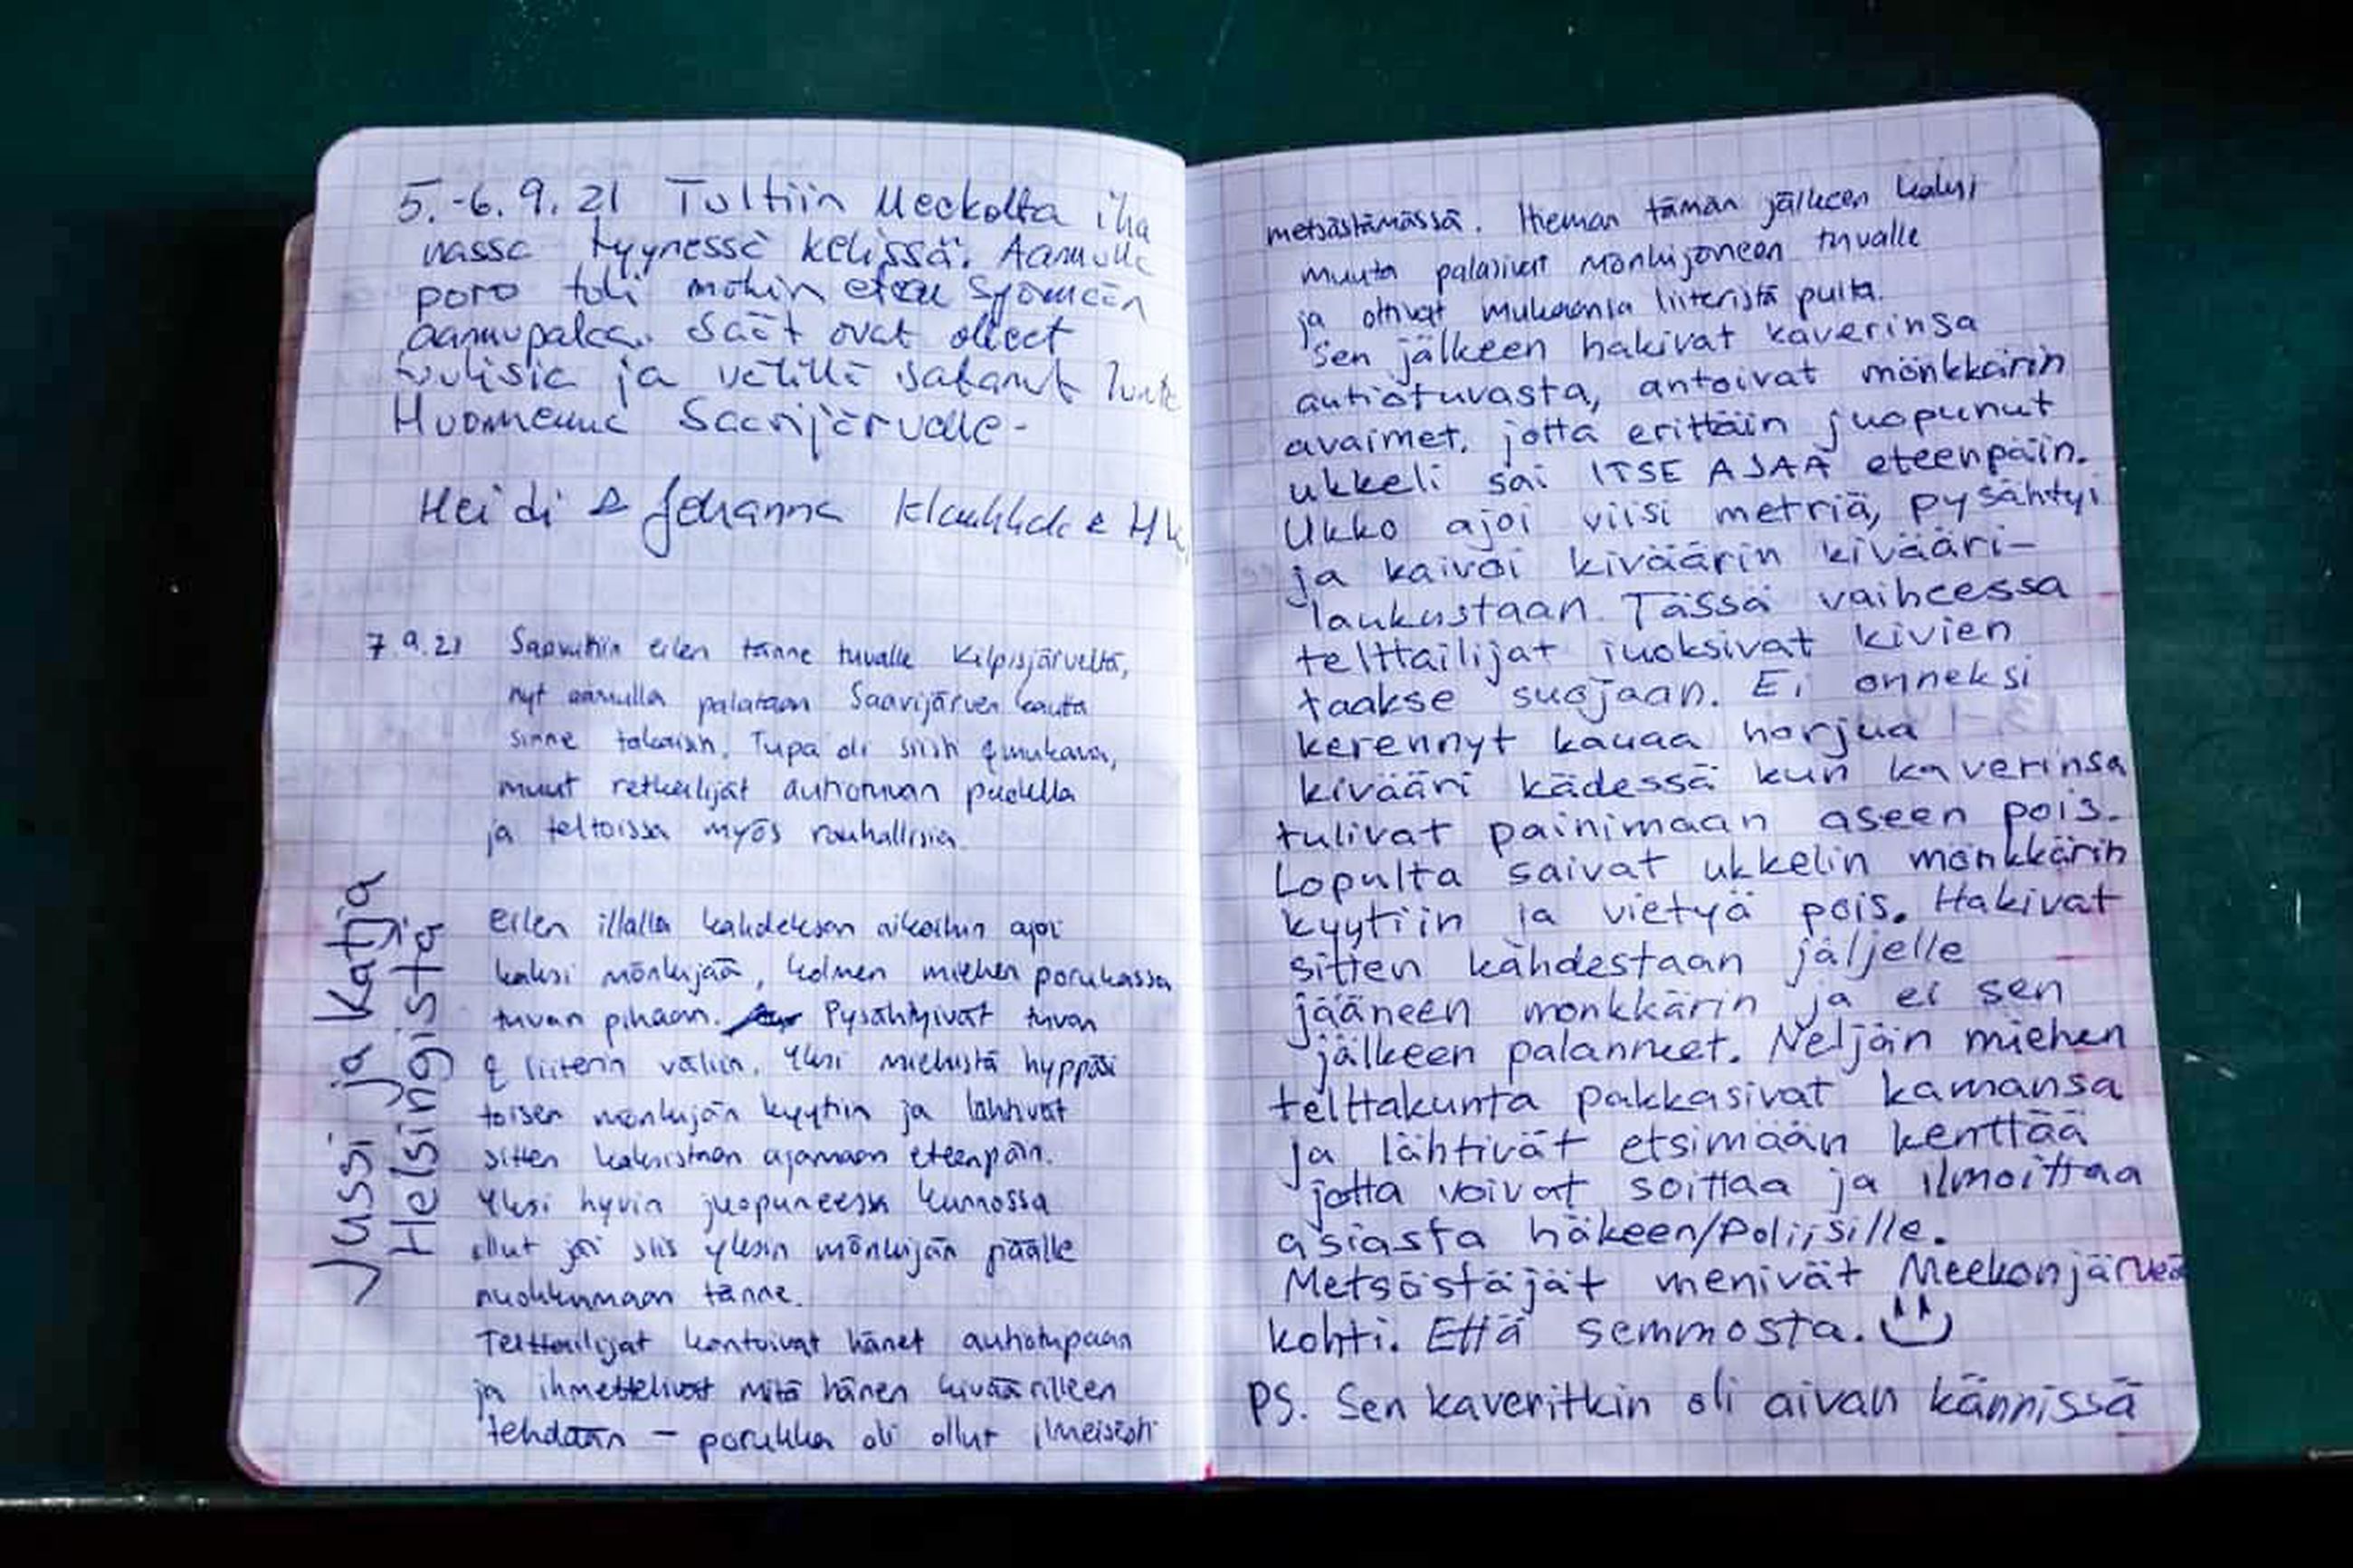 5.-6.9.21 Tultiin Meekolta iha
nassa tyynessä kelissä. Aamulla
poro tuli mökin eteen syömään
aamupalaa. Säät ovat olleet
tuulisia ja välillä satanut lunta
Huomenna Saarijärvelle-
Heidi & Johanna Klaukkala & Hki
7.9.21 Saavuttiin eilen tänne tuvalle Kilpisjärveltä,
nyt aamulla palataan Saarijärven kautta
sinne takaisin. Tupa oli siisti & mukava,
muut retkeilijät autiotuvan puolella
ja teltoissa myös rauhallisia.
Eilen illalla kahdeksan aikoihin ajoi
kaksi mönkijää, kolmen miehen porukassa
tuvan pihaan. Pysähtyivät tuvan
& liiterin väliin. Yksi miehistä hyppäsi
toisen mönkijän kyytiin ja lähtivät
sitten kaksistaan ajamaan eteenpäin.
Yksi hyvin juopuneessa kunnossa
ollut jäi siis yksin mönkijän päälle
nuokkumaan tänne.
Telttailijat kantoivat hänet autiotupaan
ja ihmettelivät mitä hänen kiväärilleen
tehdään – porukka oli ollut ilmeisesti
Jussi ja Katja
Helsingistä
metsästämässä. Hieman tämän jälkeen kaksi
muuta palasivat mönkijöneen tuvalle
ja ottivat mukaansa liiteristä puita.
Sen jälkeen hakivat kaverinsa
autiotuvasta, antoivat mönkkärin
avaimet, jotta erittäin juopunut
ukkeli sai ITSE AJAA eteenpäin.
Ukko ajoi viisi metriä, pysähtyi
ja kaivoi kiväärin kivääri-
laukustaan. Tässä vaiheessa
telttailijat juoksivat kivien
taakse suojaan. Ei onneksi
kerennyt kauaa horjua
kivääri kädessä kun kaverinsa
tulivat painimaan aseen pois.
Lopulta saivat ukkelin mönkkärin
kyytiin ja vietyä pois. Hakivat
sitten kahdestaan jäljelle
jääneen mönkkärin ja ei sen
jälkeen palanneet. Neljän miehen
telttakunta pakkasivat kamansa
ja lähtivät etsimään kenttää
jotta voivat soittaa ja ilmoittaa
asiasta häkeen/Poliisille.
Metsästäjät menivät Meekonjärveä
kohti. Että semmosta.
PS. Sen kaveritkin oli aivan kännissä